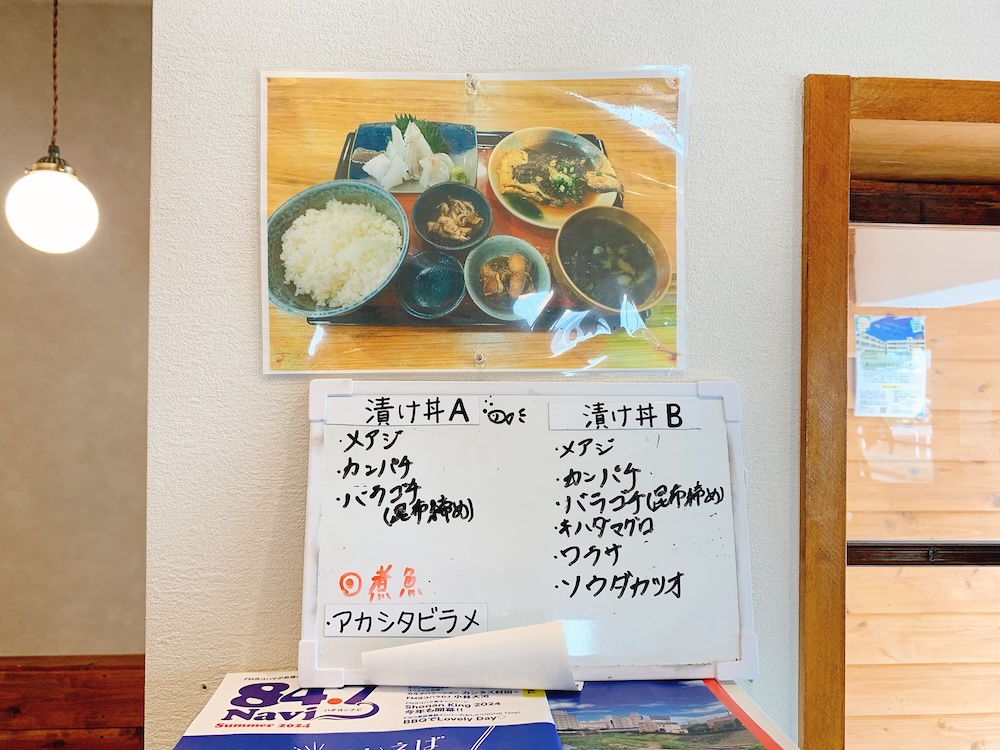 漬け丼A
・メアジ
・カンパチ
・バラゴチ
(昆布締め)
◎煮魚
・アカシタビラメ
漬け丼B
・メアジ
・カンパチ
・バラゴチ(昆布締め)
・キハダマグロ
・ワラサ
・ソウダカツオ
84.7
Navi
ハチヨンナビ
Summer 2024
小林大河
Shonan King 2024
今年も開幕!!
BBQでLovely Day